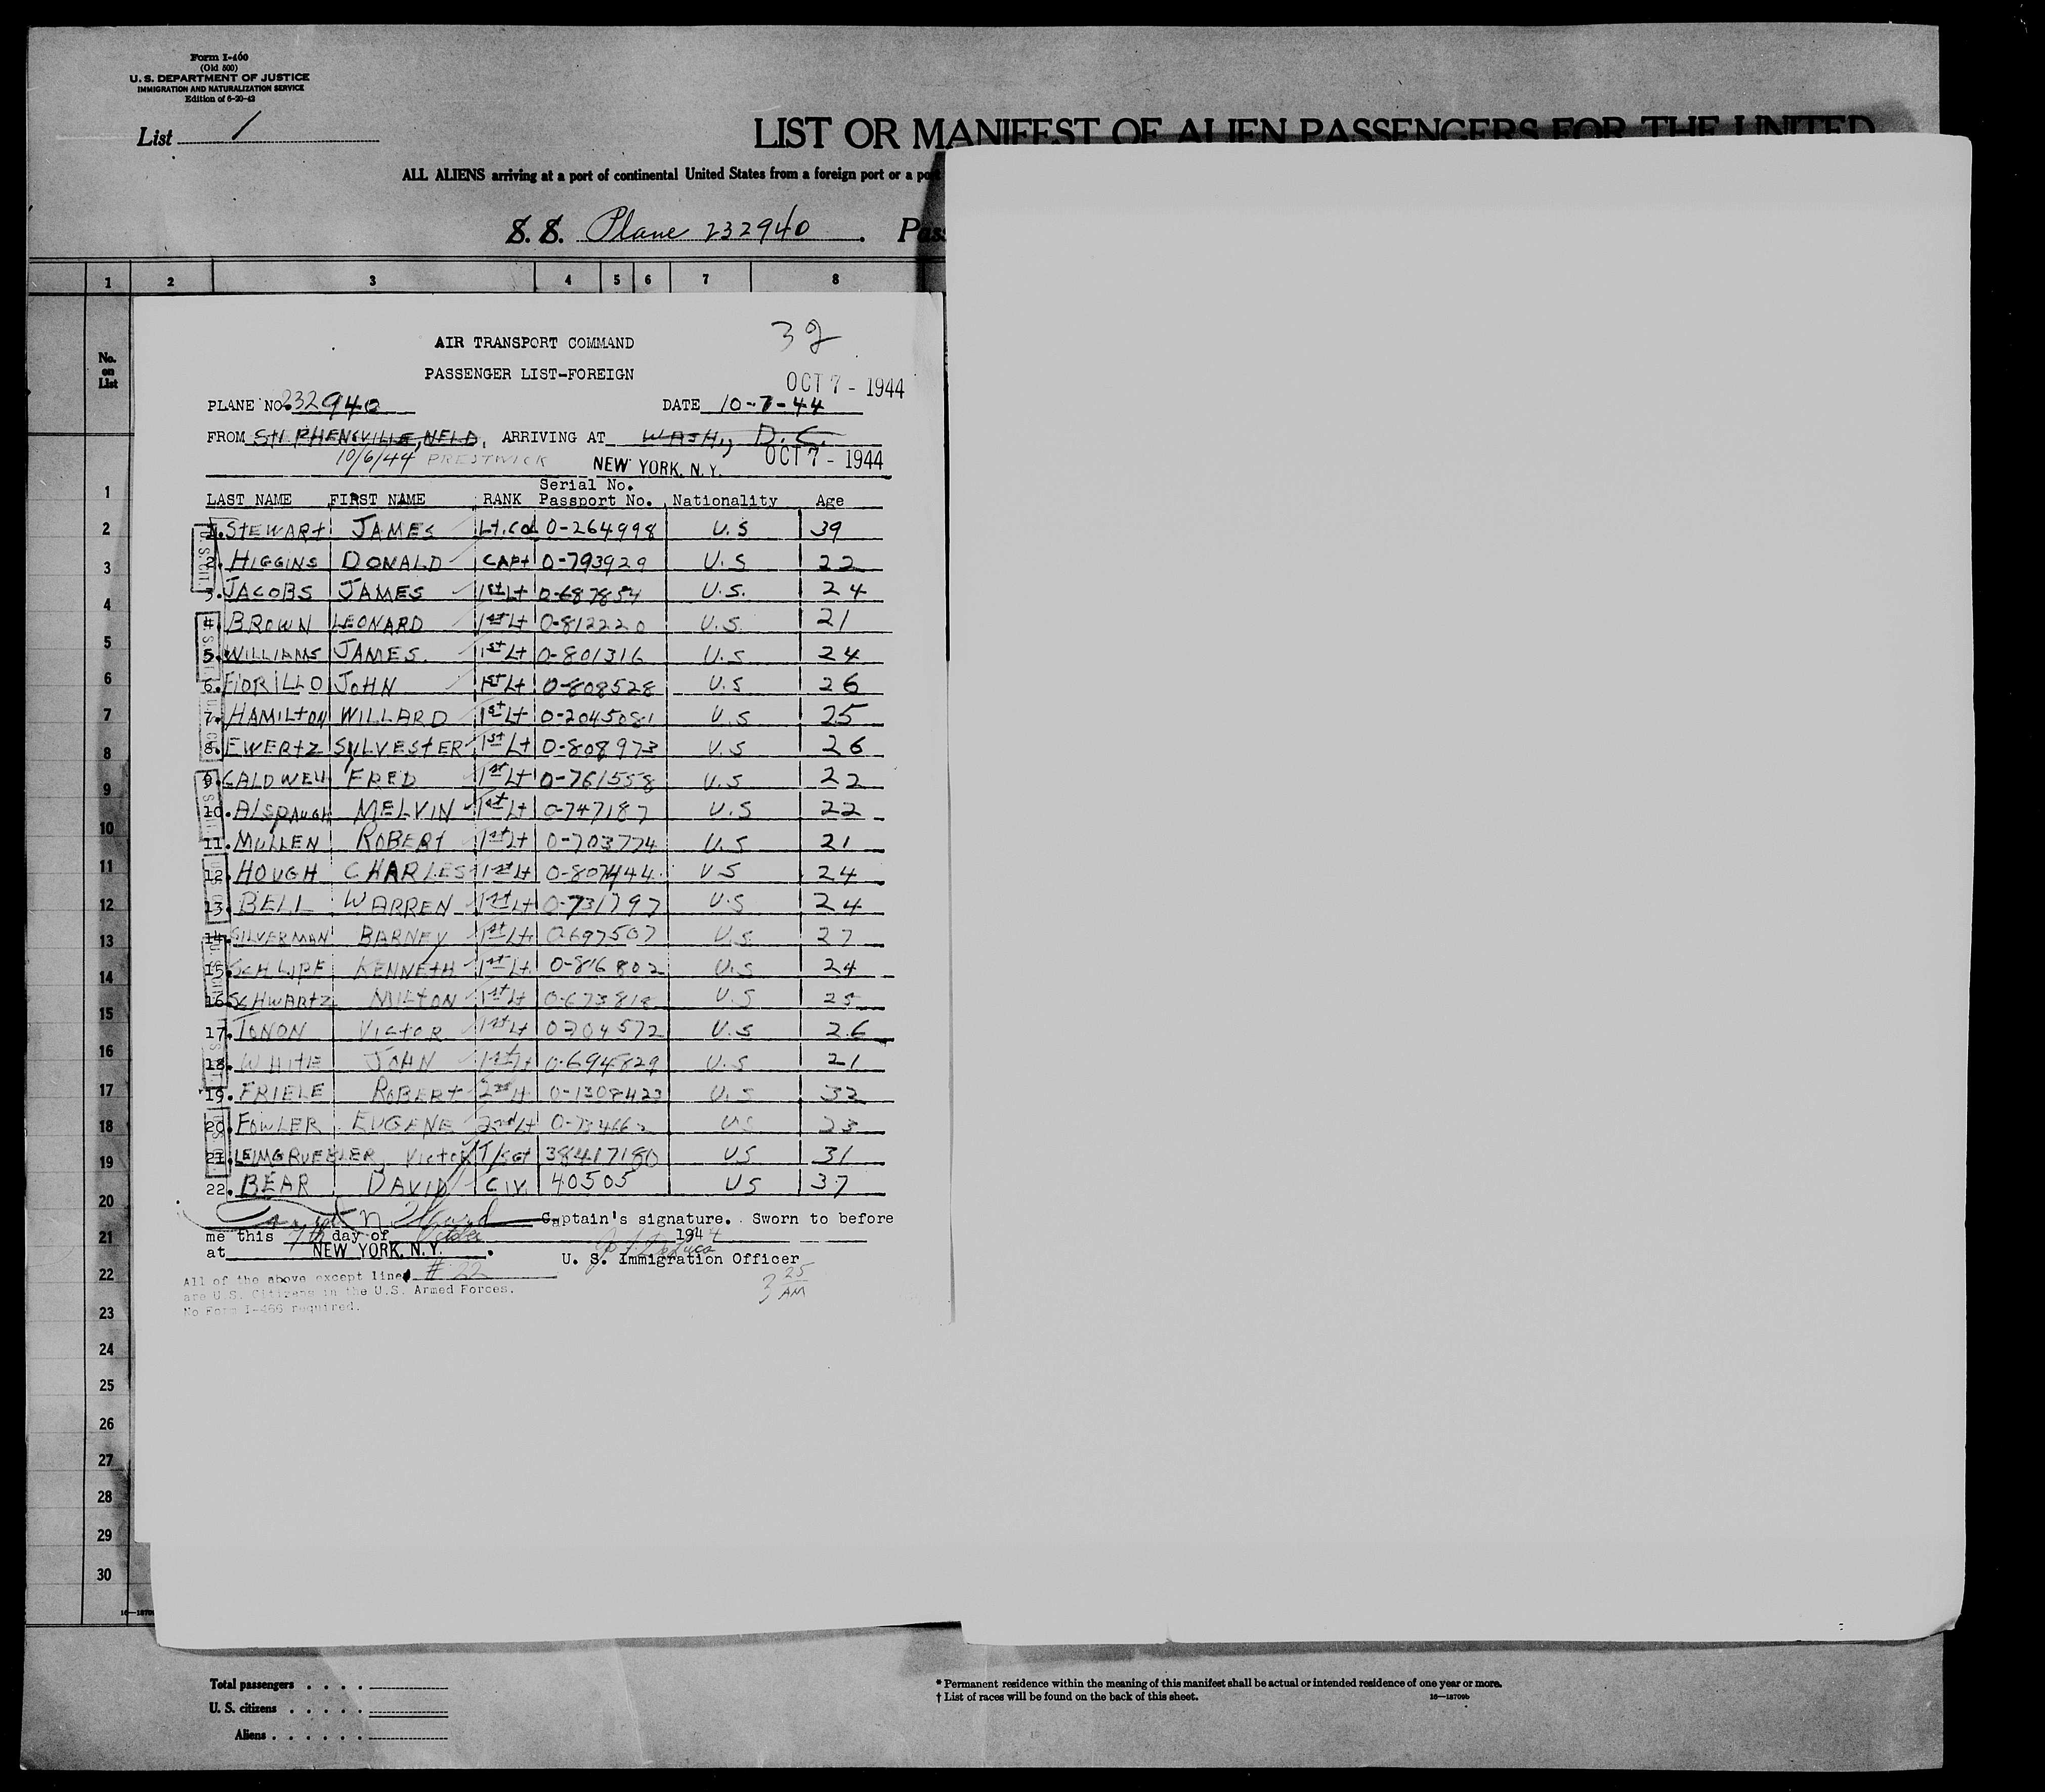 Form I-460
(Old 500)
U. S. DEPARTMENT OF JUSTICE
IMMIGRATION AND NATURALIZATION SERVICE
Edition of 6-20-42
List 1
LIST OR MANIFEST OF ALIEN PASSENGERS FOR THE UNITED
ALL ALIENS arriving at a port of continental United States from a foreign port or a po
S. S. Plane 232940 . Pass
1 2 3 4 5 6 7 8
No. on List
AIR TRANSPORT COMMAND
PASSENGER LIST-FOREIGN
OCT 7 - 1944
PLANE NO. 232940 DATE 10-7-44
FROM STEPHENSVILLE, NFLD, ARRIVING AT WASH, D.C.
10/6/44 PRESTWICK NEW YORK, N.Y. OCT 7 - 1944
Serial No.
LAST NAME FIRST NAME RANK Passport No. Nationality Age
1. STEWART JAMES Lt. Col 0-264998 U.S 39
2. HIGGINS DONALD CAPt 0-793929 U.S 22
3. JACOBS JAMES 1st Lt 0-687854 U.S. 24
4. BROWN LEONARD 1st Lt 0-812220 U.S. 21
5. WILLIAMS JAMES. 1st Lt 0-801316 U.S 24
6. FIORILLO JOHN 1st Lt 0-808528 U.S 26
7. HAMILTON WILLARD 1st Lt 0-2045081 U.S 25
8. EWERTZ SYLVESTER 1st Lt 0-808973 U.S 26
9. CALDWELL FRED 1st Lt 0-761558 U.S 22
10. AlSPAUGH MELVIN 1st Lt 0-747187 U.S 22
11. MULLEN ROBERT 1st Lt 0-703774 U.S 21
12. HOUGH CHARLES 1st Lt 0-807444 US 24
13. BELL WARREN 1st Lt 0-731797 U.S 24
14. SILVERMAN BARNEY 1st Lt 0-697507 U.S. 27
15. SCHLIPF KENNETH 1st Lt 0-816802 U.S 24
16. SCHWARTZ MILTON 1st Lt U.S 25
17. TONON VICTOR 1st Lt 0704572 U.S 26
18. WHITE JOHN 1st Lt 0-694829 U.S 21
19. FRIELE ROBERT 2nd Lt 0-1308423 U.S 32
20. FOWLER EUGENE 2nd Lt US 23
21. LEIMGRUEBLER, Victor T/SGT 38417180 US 31
22. BEAR DAVID CIV. 40505 US 37
Captain's signature. Sworn to before
me this 7th day of October 1944
at NEW YORK, N.Y.
U. S. Immigration Officer
All of the above except line # 22
are U.S. Citizens in the U.S. Armed Forces.
No Form I-466 required.
25
AM
1
2
3
4
5
6
7
8
9
10
11
12
13
14
15
16
17
18
19
20
21
22
23
24
25
26
27
28
29
30
Total passengers . . . .
U. S. citizens . . . . .
Aliens . . . . . .
* Permanent residence within the meaning of this manifest shall be actual or intended residence of one year or more.
† List of races will be found on the back of this sheet. 16—18709b